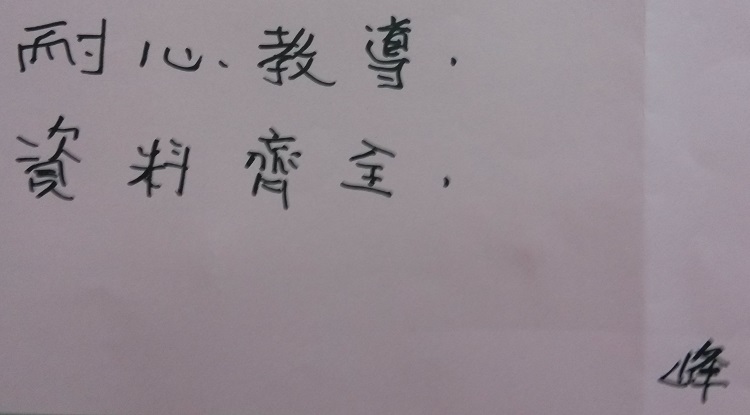 耐心教導.
資料齊全.
峰